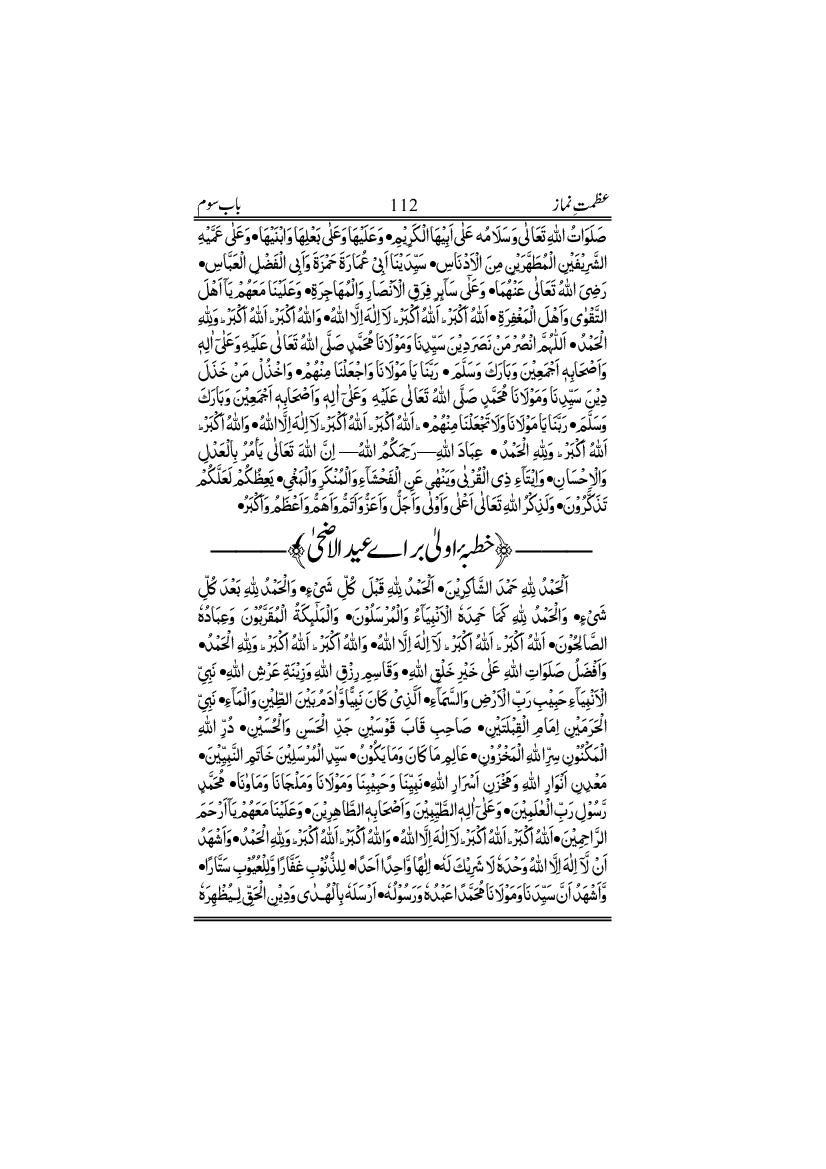 عظمتِ نماز 112 باب سوم
صَلَوَاتُ اللهِ تَعَالٰی وَسَلَامُه عَلٰی اَبِیْهَا الْکَرِیْمِ• وَعَلَیْهَا وَعَلٰی بَعْلِهَا وَابْنَیْهَا•وَعَلٰی عَمَّیْهِ
الشَّرِیْفَیْنِ الْمُطَهَّرَیْنِ مِنَ الْاَدْنَاسِ• سَیِّدَیْنَا اَبِیْ عُمَارَةَ حَمْزَةَ وَاَبِی الْفَضْلِ الْعَبَّاسِ•
رَضِیَ اللهُ تَعَالٰی عَنْهُمَا• وَعَلٰی سَآئِرِ فِرَقِ الْاَنْصَارِ وَالْمُهَاجِرَةِ• وَعَلَیْنَا مَعَهُمْ یَآ اَهْلَ
التَّقْوٰی وَاَهْلَ الْمَغْفِرَةِ• اَللهُ اَکْبَرْ۔ اَللهُ اَکْبَرْ۔ لَآ اِلٰهَ اِلَّا اللهُ• وَاللهُ اَکْبَرْ۔ اَللهُ اَکْبَرْ۔ وَلِلّٰهِ
الْحَمْدُ• اَللّٰهُمَّ انْصُرْ مَنْ نَصَرَ دِیْنَ سَیِّدِنَا وَمَوْلَانَا مُحَمَّدٍ صَلَّی اللهُ تَعَالٰی عَلَیْهِ وَعَلٰٓی اٰلِهٖ
وَاَصْحَابِهٖ اَجْمَعِیْنَ وَبَارَكَ وَسَلَّمَ• رَبَّنَا یَا مَوْلَانَا وَاجْعَلْنَا مِنْهُمْ• وَاخْذُلْ مَنْ خَذَلَ
دِیْنَ سَیِّدِنَا وَمَوْلَانَا مُحَمَّدٍ صَلَّی اللهُ تَعَالٰی عَلَیْهِ وَعَلٰٓی اٰلِهٖ وَاَصْحَابِهٖ اَجْمَعِیْنَ وَبَارَكَ
وَسَلَّمَ• رَبَّنَا یَا مَوْلَانَا وَلَا تَجْعَلْنَا مِنْهُمْ•۔ اَللهُ اَکْبَرْ۔ اَللهُ اَکْبَرْ۔ لَآ اِلٰهَ اِلَّا اللهُ• وَاللهُ اَکْبَرْ۔
اَللهُ اَکْبَرْ۔ وَلِلّٰهِ الْحَمْدُ• عِبَادَ اللهِ—رَحِمَکُمُ اللهُ— اِنَّ اللهَ تَعَالٰی یَأْمُرُ بِالْعَدْلِ
وَالْاِحْسَانِ• وَاِیْتَآءِ ذِی الْقُرْبٰی وَیَنْهٰی عَنِ الْفَحْشَآءِ وَالْمُنْکَرِ وَالْبَغْیِ• یَعِظُکُمْ لَعَلَّکُمْ
تَذَکَّرُوْنَ• وَلَذِکْرُ اللهِ تَعَالٰی اَعْلٰی وَاَوْلٰی وَاَجَلُّ وَاَعَزُّ وَاَتَمُّ وَاَهَمُّ وَاَعْظَمُ وَاَکْبَرُ•
خطبۂ اولیٰ براے عید الاضحیٰ
اَلْحَمْدُ لِلّٰهِ حَمْدَ الشَّاکِرِیْنَ• اَلْحَمْدُ لِلّٰهِ قَبْلَ کُلِّ شَیْءٍ• وَالْحَمْدُ لِلّٰهِ بَعْدَ کُلِّ
شَیْءٍ• وَالْحَمْدُ لِلّٰهِ کَمَا حَمِدَهُ الْاَنْبِیَآءُ وَالْمُرْسَلُوْنَ• وَالْمَلٰٓئِکَةُ الْمُقَرَّبُوْنَ وَعِبَادُهُ
الصَّالِحُوْنَ• اَللهُ اَکْبَرْ۔ اَللهُ اَکْبَرْ۔ لَآ اِلٰهَ اِلَّا اللهُ• وَاللهُ اَکْبَرْ۔ اَللهُ اَکْبَرْ۔ وَلِلّٰهِ الْحَمْدُ•
وَاَفْضَلُ صَلَوَاتِ اللهِ عَلٰی خَیْرِ خَلْقِ اللهِ• وَقَاسِمِ رِزْقِ اللهِ وَزِیْنَةِ عَرْشِ اللهِ• نَبِیِّ
الْاَنْبِیَآءِ حَبِیْبِ رَبِّ الْاَرْضِ وَالسَّمَآءِ• اَلَّذِیْ کَانَ نَبِیًّا وَّاٰدَمُ بَیْنَ الطِّیْنِ وَالْمَآءِ• نَبِیِّ
الْحَرَمَیْنِ اِمَامِ الْقِبْلَتَیْنِ• صَاحِبِ قَابَ قَوْسَیْنِ جَدِّ الْحَسَنِ وَالْحُسَیْنِ• دُرِّ اللهِ
الْمَکْنُوْنِ سِرِّ اللهِ الْمَخْزُوْنِ• عَالِمِ مَا کَانَ وَمَا یَکُوْنُ• سَیِّدِ الْمُرْسَلِیْنَ خَاتَمِ النَّبِیِّیْنَ•
مَعْدِنِ اَنْوَارِ اللهِ وَمَخْزَنِ اَسْرَارِ اللهِ• نَبِیِّنَا وَحَبِیْبِنَا وَمَوْلَانَا وَمَلْجَانَا وَمَاوٰنَا• مُحَمَّدٍ
رَّسُوْلِ رَبِّ الْعٰلَمِیْنَ• وَعَلٰٓی اٰلِهِ الطَّیِّبِیْنَ وَاَصْحَابِهِ الطَّاهِرِیْنَ• وَعَلَیْنَا مَعَهُمْ یَآ اَرْحَمَ
الرَّاحِمِیْنَ• اَللهُ اَکْبَرْ۔ اَللهُ اَکْبَرْ۔ لَآ اِلٰهَ اِلَّا اللهُ• وَاللهُ اَکْبَرْ۔ اَللهُ اَکْبَرْ۔ وَلِلّٰهِ الْحَمْدُ• وَاَشْهَدُ
اَنْ لَّآ اِلٰهَ اِلَّا اللهُ وَحْدَهٗ لَا شَرِیْكَ لَهٗ• اِلٰهًا وَّاحِدًا اَحَدًا• لِلذُّنُوْبِ غَفَّارًا وَّلِلْعُیُوْبِ سَتَّارًا•
وَّاَشْهَدُ اَنَّ سَیِّدَنَا وَمَوْلَانَا مُحَمَّدًا عَبْدُهٗ وَرَسُوْلُهٗ• اَرْسَلَهٗ بِالْهُدٰی وَدِیْنِ الْحَقِّ لِیُظْهِرَهٗ